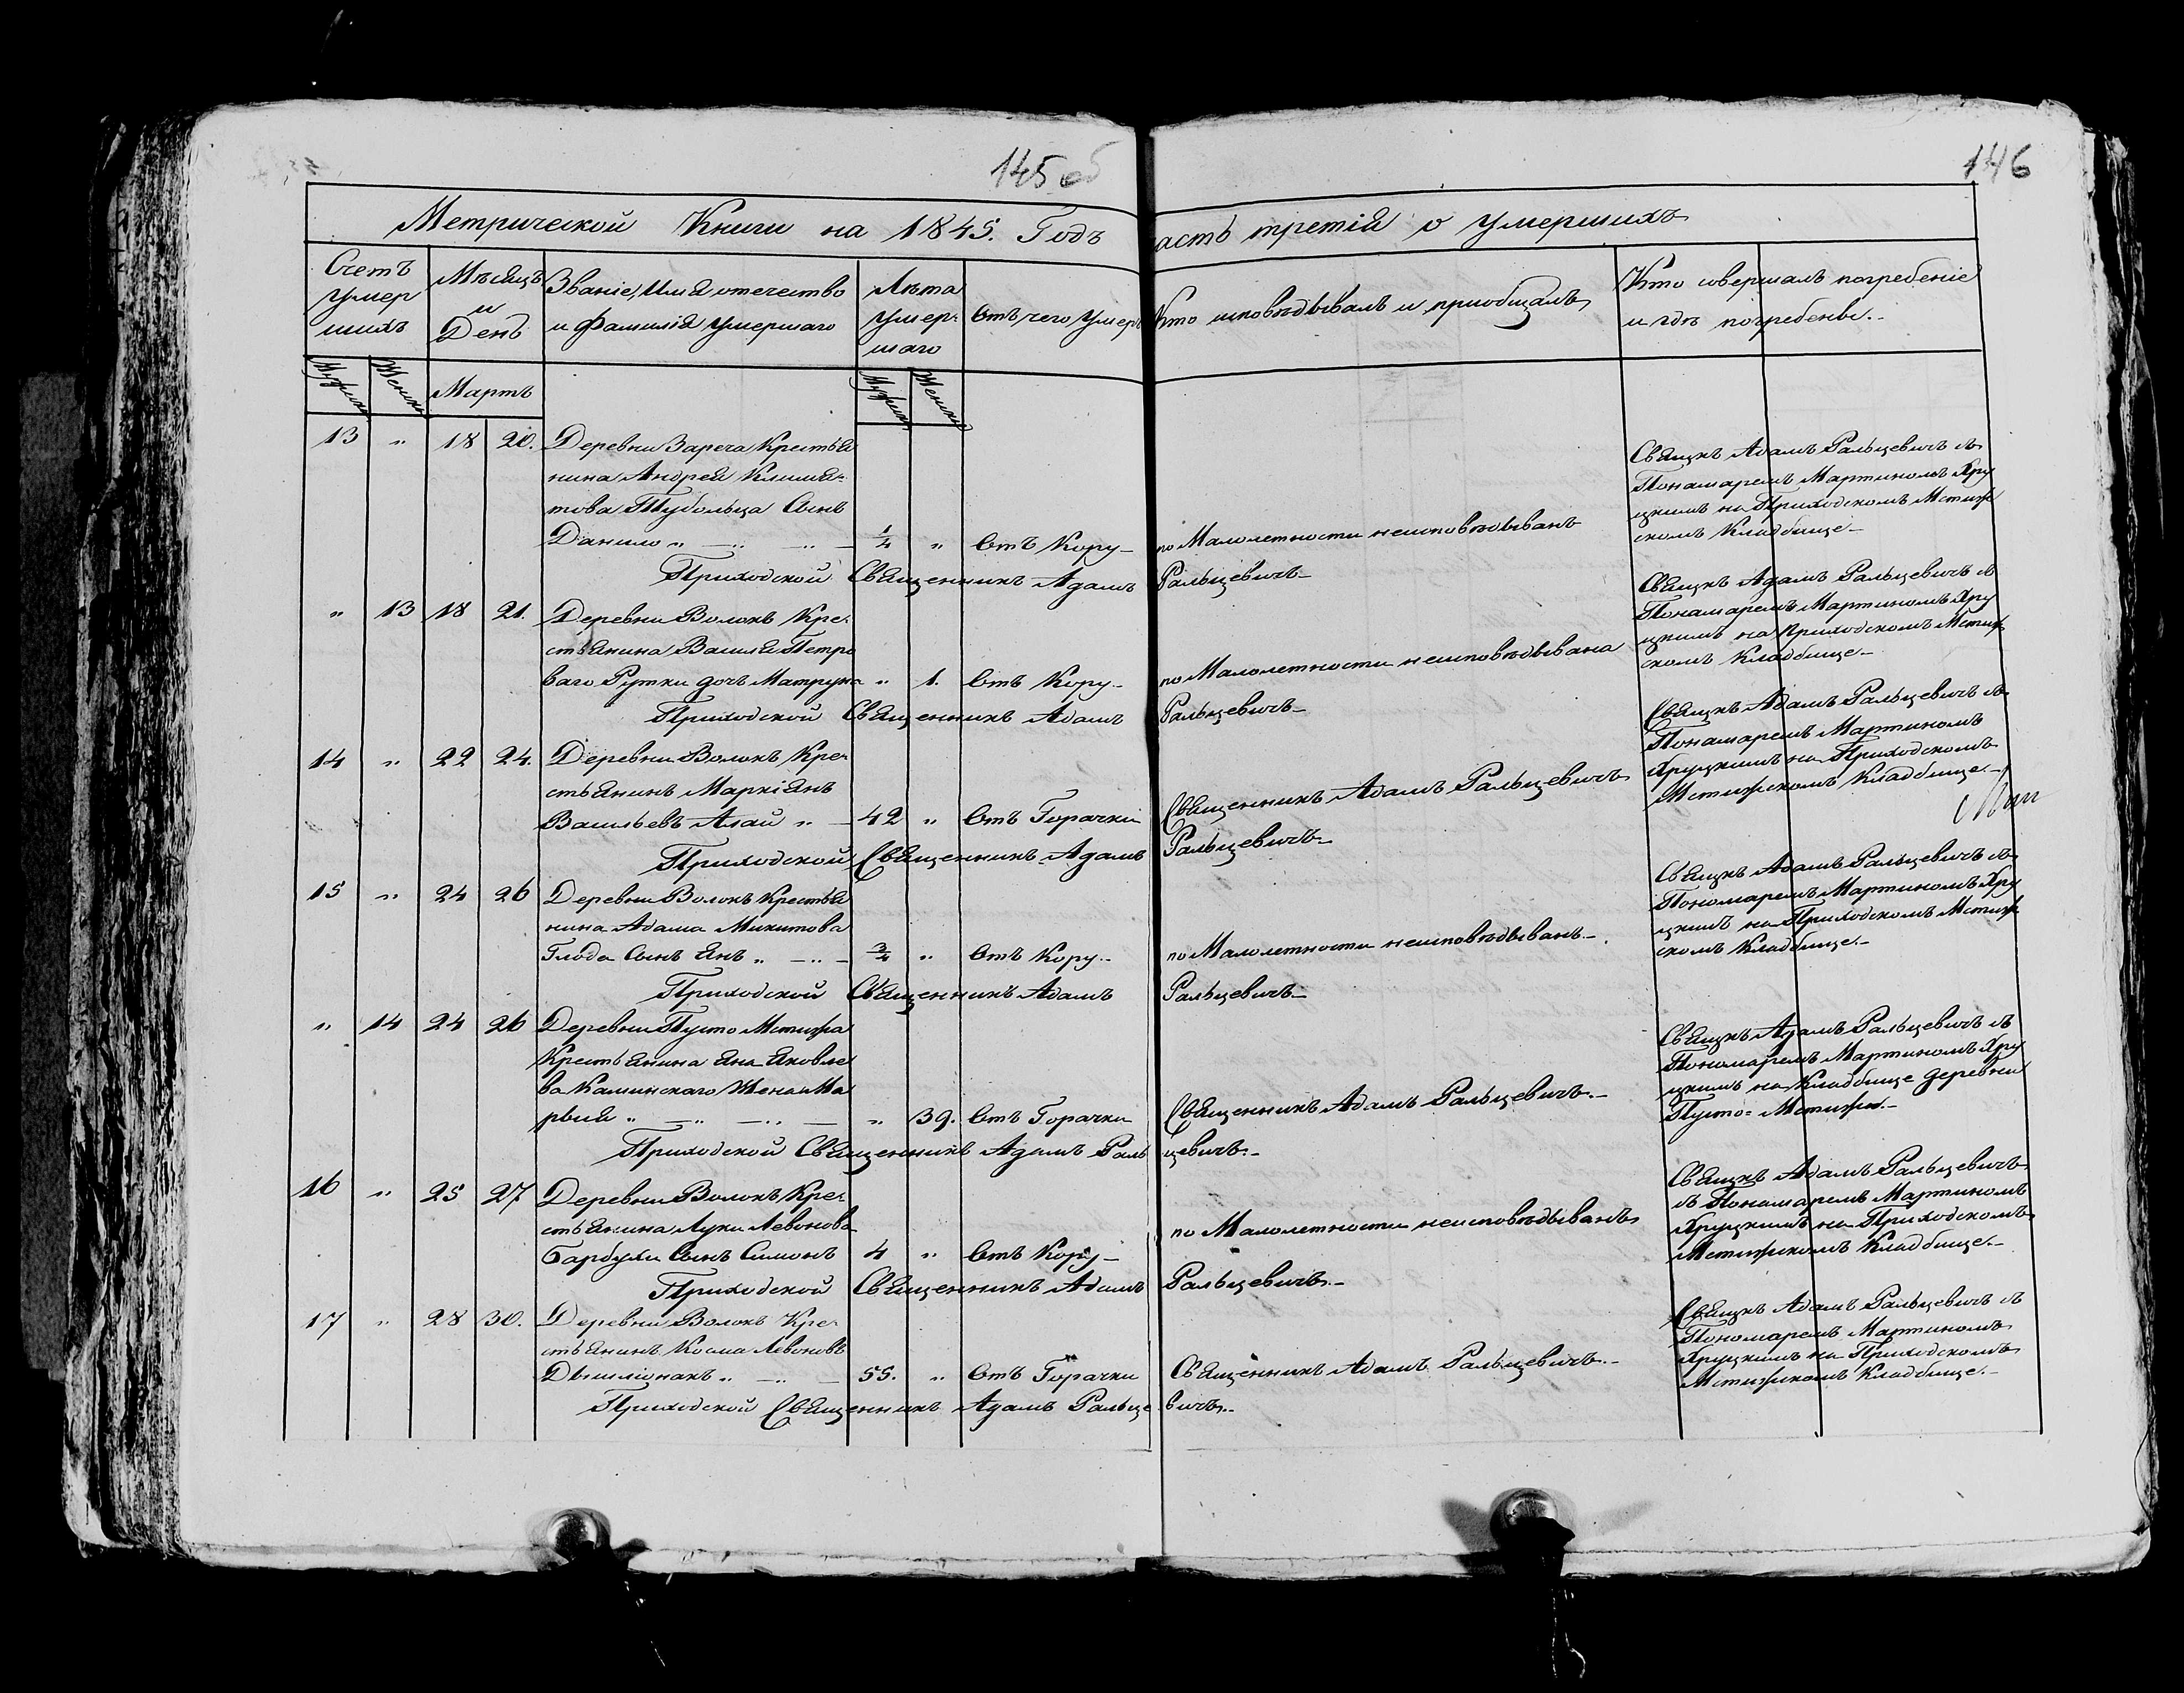 145 об
146
Метрической Книги на 1845. Годъ
асть третія о умершихъ
Счетъ умер шихъ
Мѣсяцъ и День
Званіе, Имя отечество и Фамилія умершаго
Лѣта умер- шаго
Отъ чего умеръ
Кто исповѣдывалъ и приобщалъ
Кто совершалъ погребеніе и гдѣ погребены.-
Мужска
Женска
Мартъ
Мужска
Женска
13 " 18 20. Деревни Зареча Крестья
нина Андрея Климя-
това Тубольца Сынъ
Данило " — " — " — 1/4 " Отъ Кору — по Малолетности неисповѣдыванъ
Свящкъ Адамъ Ральцевичъ съ
Понамаремъ Мартиномъ Хру
цкимъ на Приходскомъ Мстиж
скомъ Кладбище.—
Приходской Священникъ Адамъ Ральцевичъ—
" 13 18 21. Деревни Волокъ Кре-
стьянина Василя Петро
ваго Рутки дочъ Матруна " 1. Отъ Кору — по Малолетности неисповѣдывана
Свящкъ Адамъ Ральцевичъ съ
Понамаремъ Мартиномъ Хру
цкимъ на Приходскомъ Мстиж
скомъ Кладбище.—
Приходской Священникъ Адамъ Ральцевичъ—
14 " 22 24. Деревни Волокъ Кре-
стьянинъ Маркіянъ
Васильевъ Алай " — 42 " Отъ Горачки Священникъ Адамъ Ральцевичъ
Свящкъ Адамъ Ральцевичъ съ
Понамаремъ Мартиномъ
Хруцкимъ на Приходскомъ
Мстижскомъ Кладбище.—
Приходской Священникъ Адамъ Ральцевичъ—
15 " 24 26 Деревни Волокъ Крестья
нина Адама Микитова
Глода Сынъ Янъ " — " — 3/4 " Отъ Кору — по Малолетности неисповѣдыванъ.—
Свящкъ Адамъ Ральцевичъ съ
Пономаремъ Мартиномъ Хру
цкимъ на Приходскомъ Мстиж
скомъ Кладбище.—
Приходской Священникъ Адамъ Ральцевичъ—
" 14 24 26 Деревни Пусто Мстижа
Крестьянина Яна Яковле
ва Каминскаго Жена Ма
рыя " — " — " — " 39. Отъ Горачки Священникъ Адамъ Ральцевичъ.—
Свящкъ Адамъ Ральцевичъ съ
Пономаремъ Мартиномъ Хру
цкимъ на Кладбище деревни
Пусто= Мстижи.—
Приходской Священникъ Адамъ Раль цевичъ.—
16 " 25 27 Деревни Волокъ Кре-
стьянина Луки Левонова
Гарбули Сынъ Симонъ 4 " Отъ Кору — по Малолетности неисповѣдыванъ
Свящкъ Адамъ Ральцевичъ
съ Понамаремъ Мартиномъ
Хруцкимъ на Приходскомъ
Мстижскомъ Кладбище.—
Приходской Священникъ Адамъ Ральцевичъ.—
17 " 28 30. Деревни Волокъ Кре-
стьянинъ Косма Левоновъ
" — " — 55. " Отъ Горачки Священникъ Адамъ Ральцевичъ.—
Свящкъ Адамъ Ральцевичъ съ
Пономаремъ Мартиномъ
Хруцкимъ на Приходскомъ
Мстижскомъ Кладбище.—
Приходской Священникъ Адамъ Ральце вичъ.—